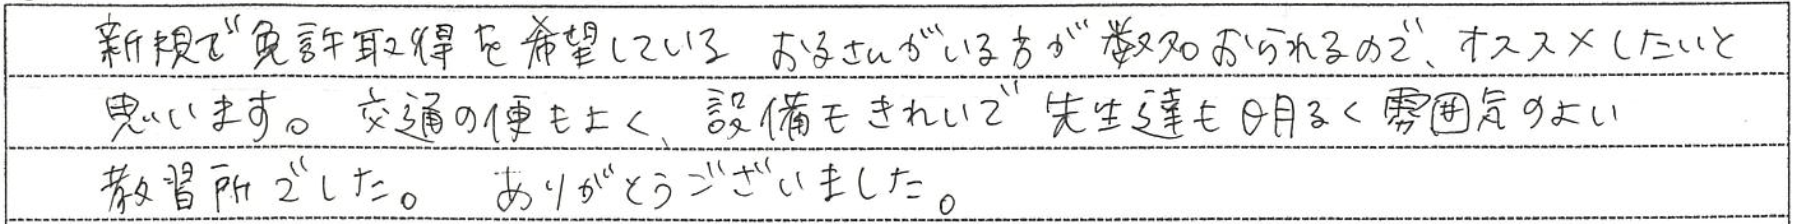 新規で免許取得を希望している お子さんがいる方が数名おられるので、オススメしたいと
思います。 交通の便もよく、設備もきれいで 先生達も明るく雰囲気のよい
教習所でした。 ありがとうございました。